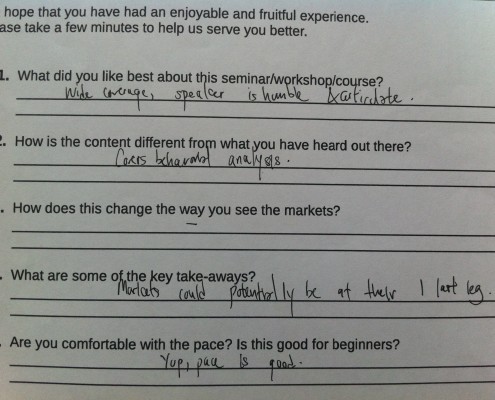 hope that you have had an enjoyable and fruitful experience.
ase take a few minutes to help us serve you better.
1. What did you like best about this seminar/workshop/course?
Wide coverage, speaker is humble & articulate.
2. How is the content different from what you have heard out there?
Covers behavioral analysis.
. How does this change the way you see the markets?
–
. What are some of the key take-aways?
Markets could potentially be at their last leg.
. Are you comfortable with the pace? Is this good for beginners?
Yup, pace is good.